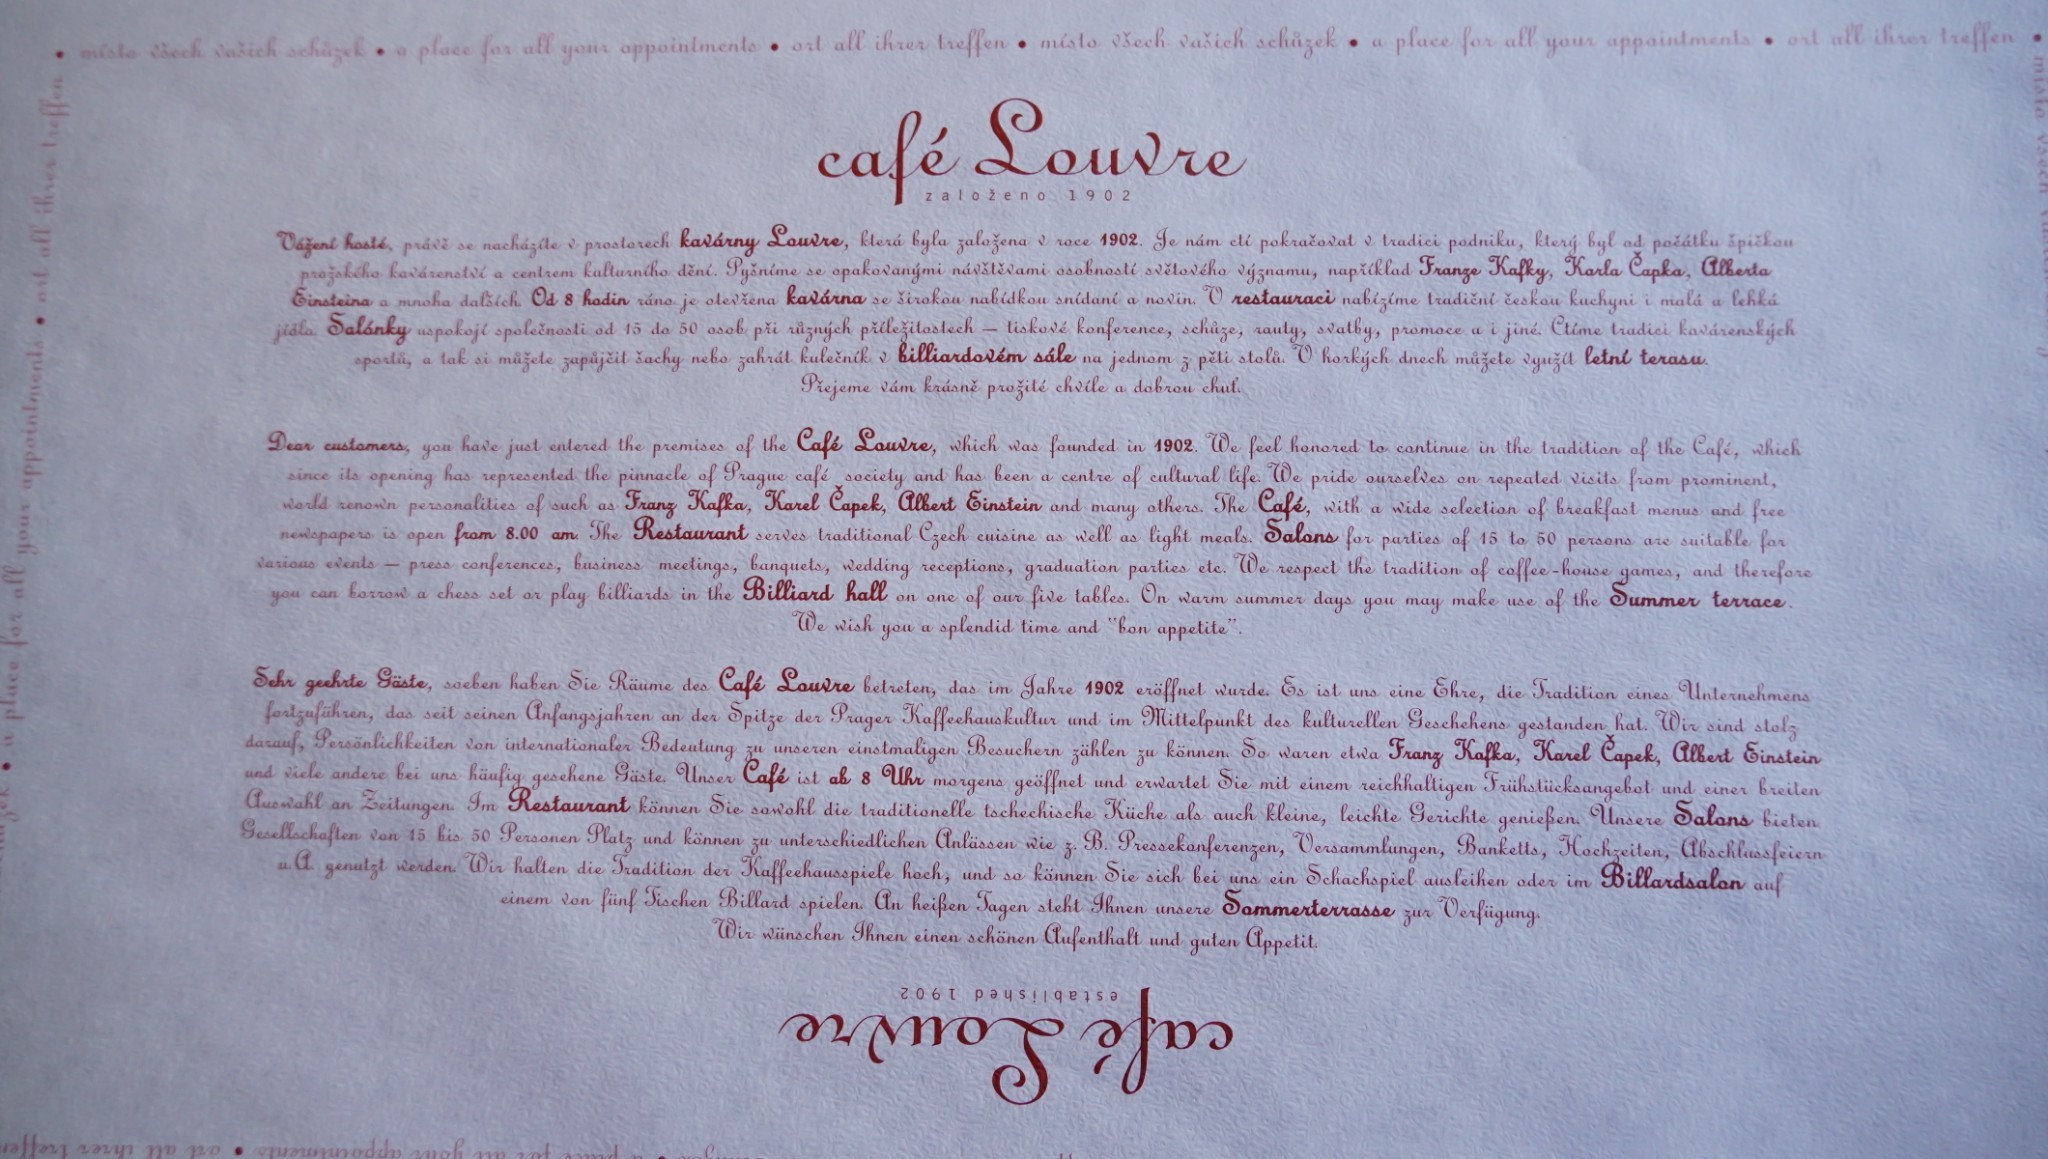 • místo všech vašich schůzek • a place for all your appointments • ort all ihrer treffen • místo všech vašich schůzek • a place for all your appointments • ort all ihrer treffen •
café Louvre
založeno 1902
Vážení hosté, právě se nacházíte v prostorech kavárny Louvre, která byla založena v roce 1902. Je nám ctí pokračovat v tradici podniku, který byl od počátku špičkou
pražského kavárenství a centrem kulturního dění. Pyšníme se opakovanými návštěvami osobností světového významu, například Franze Kafky, Karla Čapka, Alberta
Einsteina a mnoha dalších. Od 8 hodin ráno je otevřena kavárna se širokou nabídkou snídaní a novin. V restauraci nabízíme tradiční českou kuchyni i malá a lehká
jídla. Salónky uspokojí společnosti od 15 do 50 osob při různých příležitostech – tiskové konference, schůze, rauty, svatby, promoce a i jiné. Ctíme tradici kavárenských
sportů, a tak si můžete zapůjčit šachy nebo zahrát kulečník v billiardovém sále na jednom z pěti stolů. V horkých dnech můžete využít letní terasu.
Přejeme vám krásně prožité chvíle a dobrou chuť.
Dear customers, you have just entered the premises of the Café Louvre, which was founded in 1902. We feel honored to continue in the tradition of the Café, which
since its opening has represented the pinnacle of Prague café society and has been a centre of cultural life. We pride ourselves on repeated visits from prominent,
world renown personalities of such as Franz Kafka, Karel Čapek, Albert Einstein and many others. The Café, with a wide selection of breakfast menus and free
newspapers is open from 8.00 am. The Restaurant serves traditional Czech cuisine as well as light meals. Salons for parties of 15 to 50 persons are suitable for
various events – press conferences, business meetings, banquets, wedding receptions, graduation parties etc. We respect the tradition of coffee-house games, and therefore
you can borrow a chess set or play billiards in the Billiard hall on one of our five tables. On warm summer days you may make use of the Summer terrace.
We wish you a splendid time and "bon appetite".
Sehr geehrte Gäste, soeben haben Sie Räume des Café Louvre betreten, das im Jahre 1902 eröffnet wurde. Es ist uns eine Ehre, die Tradition eines Unternehmens
fortzuführen, das seit seinen Anfangsjahren an der Spitze der Prager Kaffeehauskultur und im Mittelpunkt des kulturellen Geschehens gestanden hat. Wir sind stolz
darauf, Persönlichkeiten von internationaler Bedeutung zu unseren einstmaligen Besuchern zählen zu können. So waren etwa Franz Kafka, Karel Čapek, Albert Einstein
und viele andere bei uns häufig gesehene Gäste. Unser Café ist ab 8 Uhr morgens geöffnet und erwartet Sie mit einem reichhaltigen Frühstücksangebot und einer breiten
Auswahl an Zeitungen. Im Restaurant können Sie sowohl die traditionelle tschechische Küche als auch kleine, leichte Gerichte genießen. Unsere Salons bieten
Gesellschaften von 15 bis 50 Personen Platz und können zu unterschiedlichen Anlässen wie z. B. Pressekonferenzen, Versammlungen, Banketts, Hochzeiten, Abschlussfeiern
u.A. genutzt werden. Wir halten die Tradition der Kaffeehausspiele hoch, und so können Sie sich bei uns ein Schachspiel ausleihen oder im Billardsalon auf
einem von fünf Tischen Billard spielen. An heißen Tagen steht Ihnen unsere Sommerterrasse zur Verfügung.
Wir wünschen Ihnen einen schönen Aufenthalt und guten Appetit.
café Louvre
established 1902
a place for all your appointments • ort all ihrer treffen
a place for all your appointments • ort all ihrer treffen
místo všech